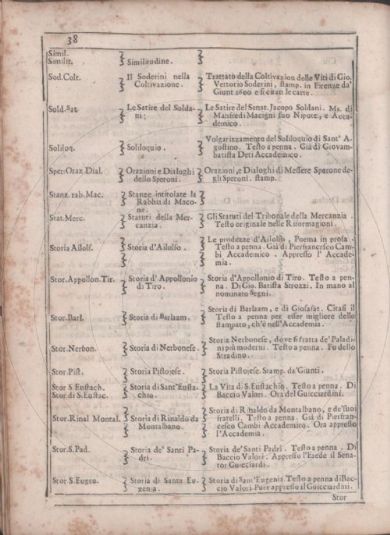 38
Simil.
Similit. Similitudine.
Sod.Colt. Il Soderini nella Coltivazione. Trattato della Coltivazion delle Viti di Gio.
Vettorio Soderini, stamp. in Firenze da'
Giunt 1600 e si citan le carte.
Sold.Sat. Le Satire del Soldani; Le Satire del Senat. Jacopo Soldani. Ms. di
Manfredi Macigni suo Nipote, e Accademico.
Soliloq. Soliloquio. Volgarizzamento del Soliloquio di Sant' Agostino. Testo a penna. Già di Giovambatista Deti Accademico.
Sper.Oraz.Dial. Orazioni e Dialoghi dello Speroni. Orazioni, e Dialoghi di Messere Sperone degli Speroni. stamp.
Stanz. rab.Mac. Stanze intitolate la Rabbia di Macone.
Stat.Merc. Statuti della Mercanzia. Gli Statuti del Tribonale della Mercanzia.
Testo originale nelle Riformagioni.
Storia Aiolf. Storia d'Aiolfo. Le prodezze d'Aiolfo, Poema in prosa.
Testo a penna. Già di Pierfrancesco Cambi Accademico. Appresso l' Accademia.
Stor.Appollon.Tir. Storia d' Appollonio di Tiro. Storia d'Appollonio di Tiro. Testo a penna. Di Gio. Batista Strozzi. In mano al
nominato Segni.
Stor.Barl. Storia di Barlaam. Storia di Barlaam, e di Giosafat. Citasi il
Testo a penna per esser migliore dello
stampato, ch'è nell'Accademia.
Stor.Nerbon. Storia di Nerbonese. Storia Nerbonese, dove si tratta de' Paladini più moderni. Testo a penna. Fu dello
Stradino.
Stor.Pist. Storia Pistolese. Storia Pistolese. Stamp. da'Giunti.
Stor S Eustach.
Stor di S.Eustac. Storia di Sant'Eustachio. La Vita di S.Eustachio. Testo a penna. Di
Baccio Valori. Ora del Guicciardini.
Stor.Rinal Montal. Storia di Rinaldo da Montalbano. Storia di Rinaldo da Montalbano, e de'suoi
fratelli. Testo a penna. Già di Pierfrancesco Cambi Accademico. Ora appresso
l'Accademia.
Stor.S.Pad. Storia de' Santi Padri. Storia de' Santi Padri. Testo a penna. Di
Baccio Valori. Appresso l'Erede il Senator Guicciardi.
Stor.S.Eugen. Storia di Santa Eugenia. Storia di Sant'Eugenia. Testo a penna di Baccio Valori. Pure appresso il Guicciardini.
Stor